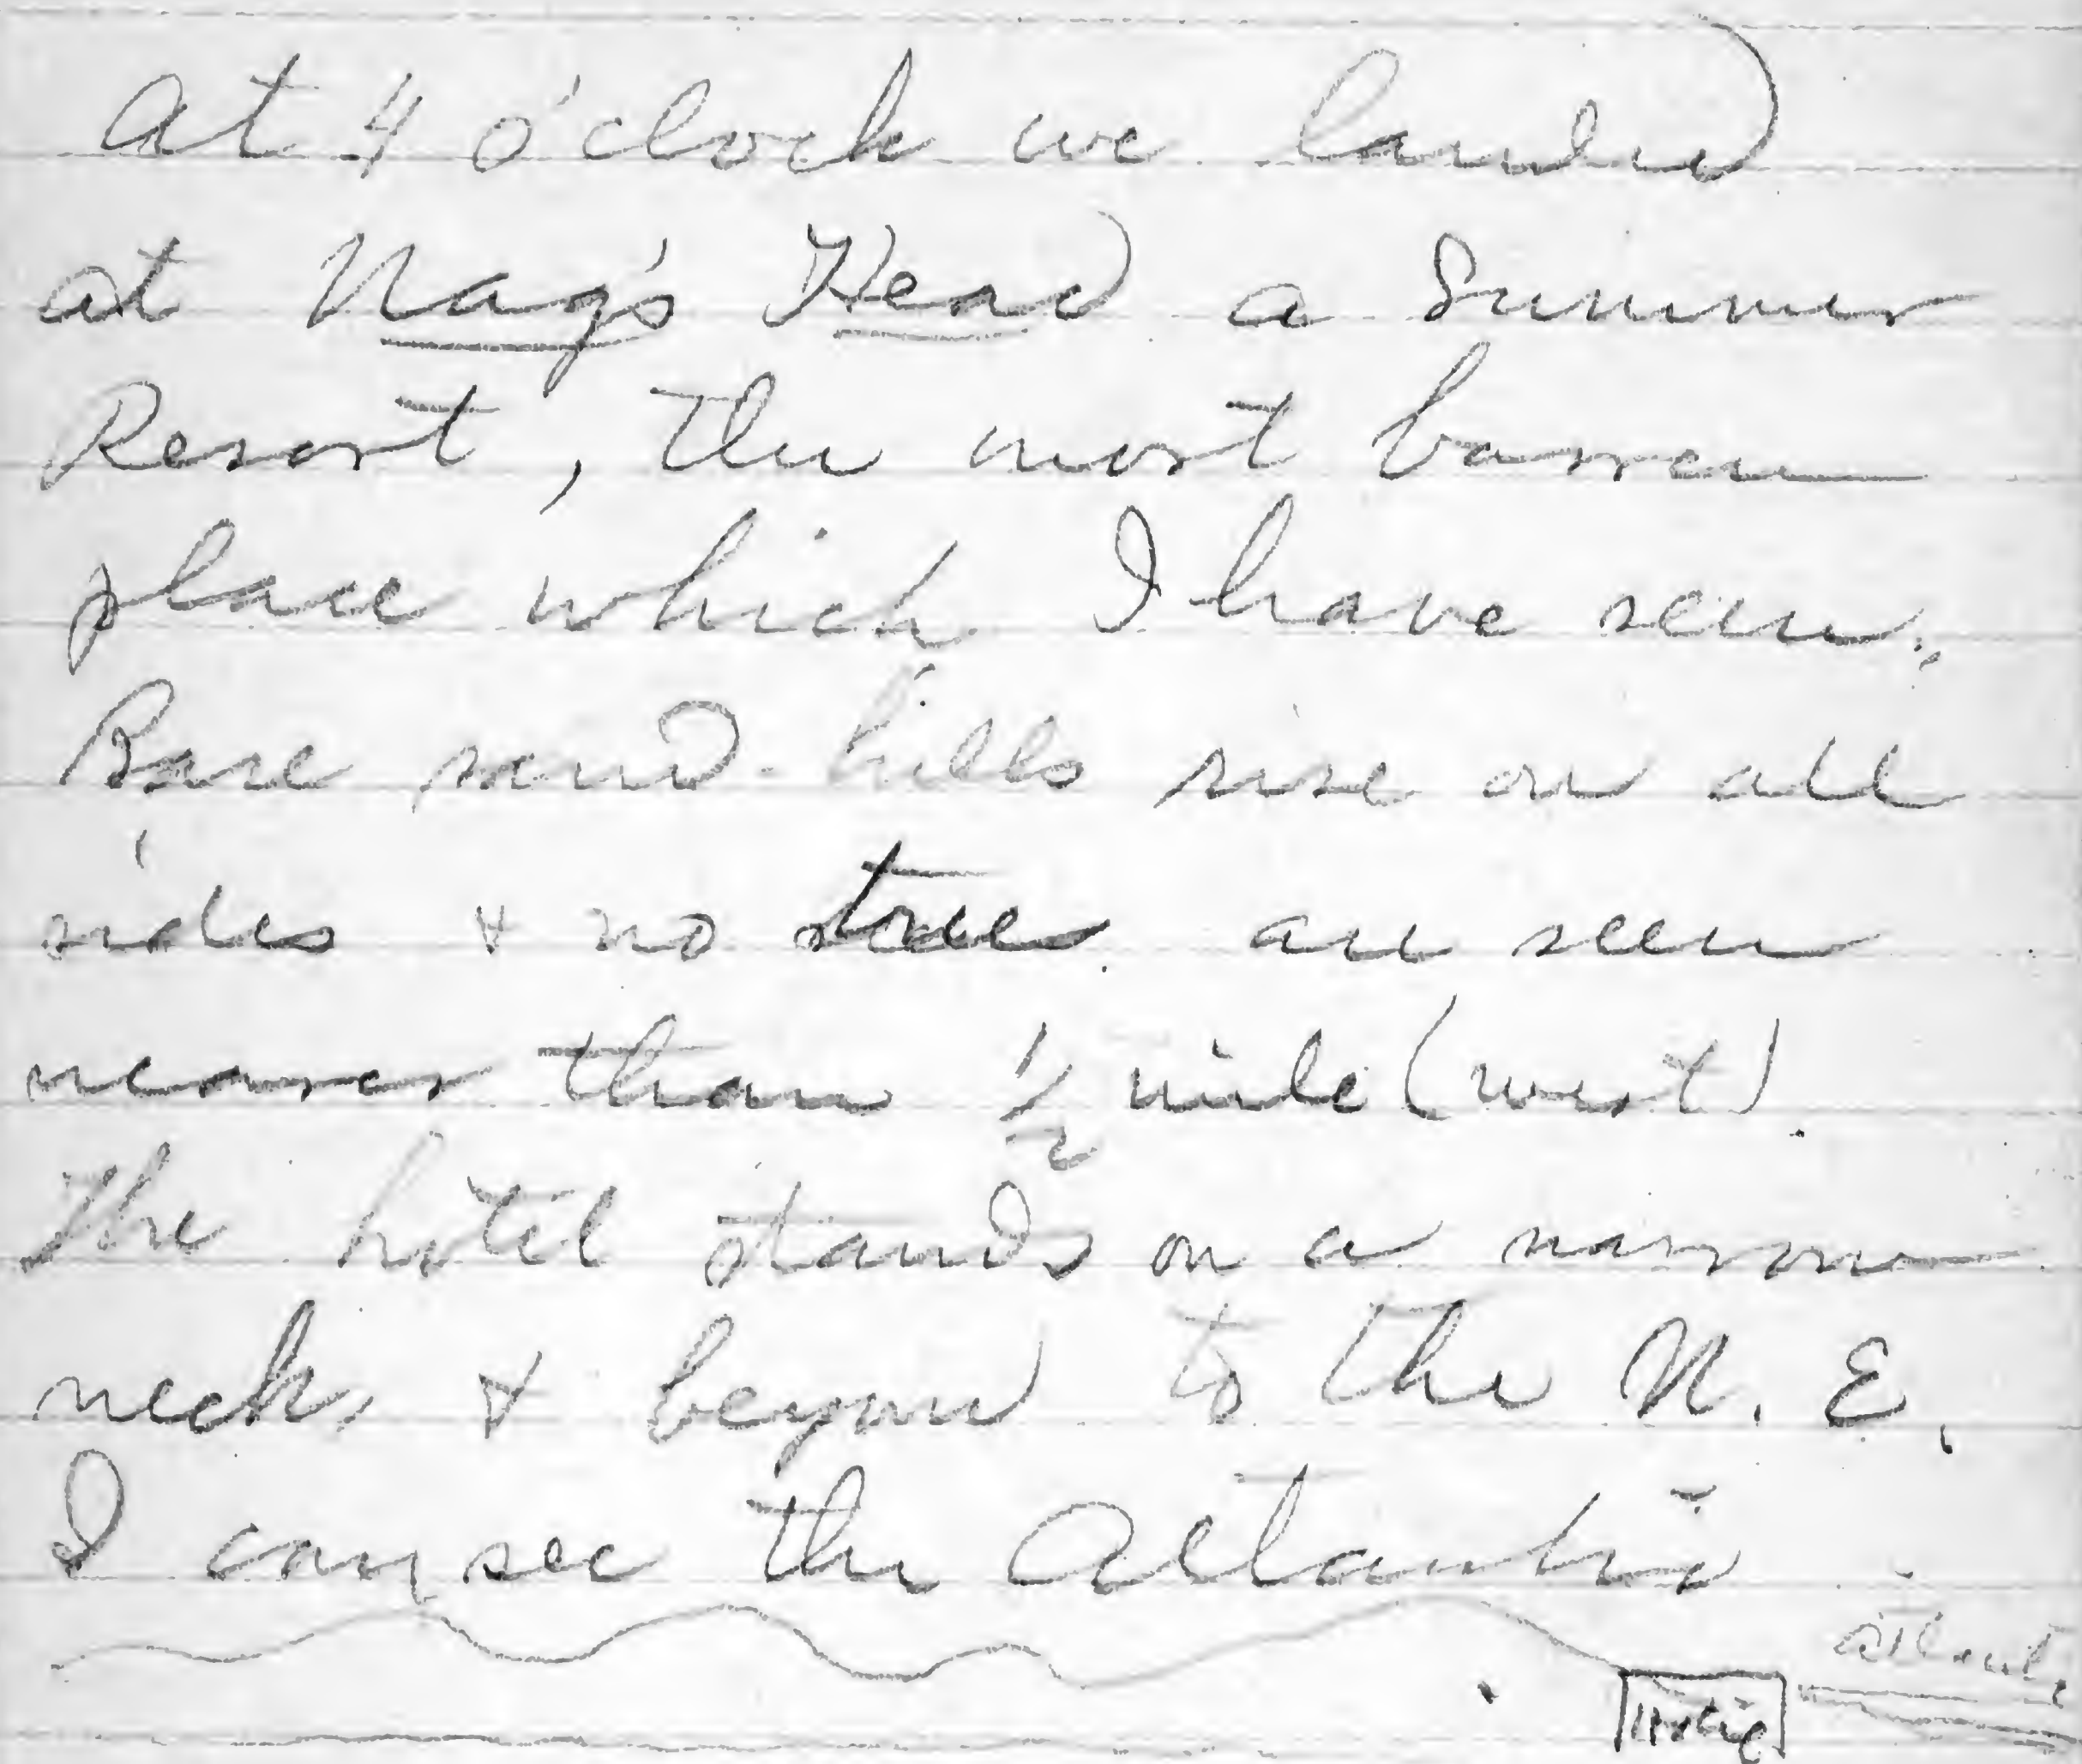 At 4 o'clock we landed
at Nag's Head a Summer
Resort, the most barren
place which I have seen.
Bare sand-hills rise on all
sides & no trees are seen
nearer than 1/2 mile (west).
The hotel stands on a narrow
neck & beyond to the N. E.
I can see the Atlantic
Atlantic
Hotel